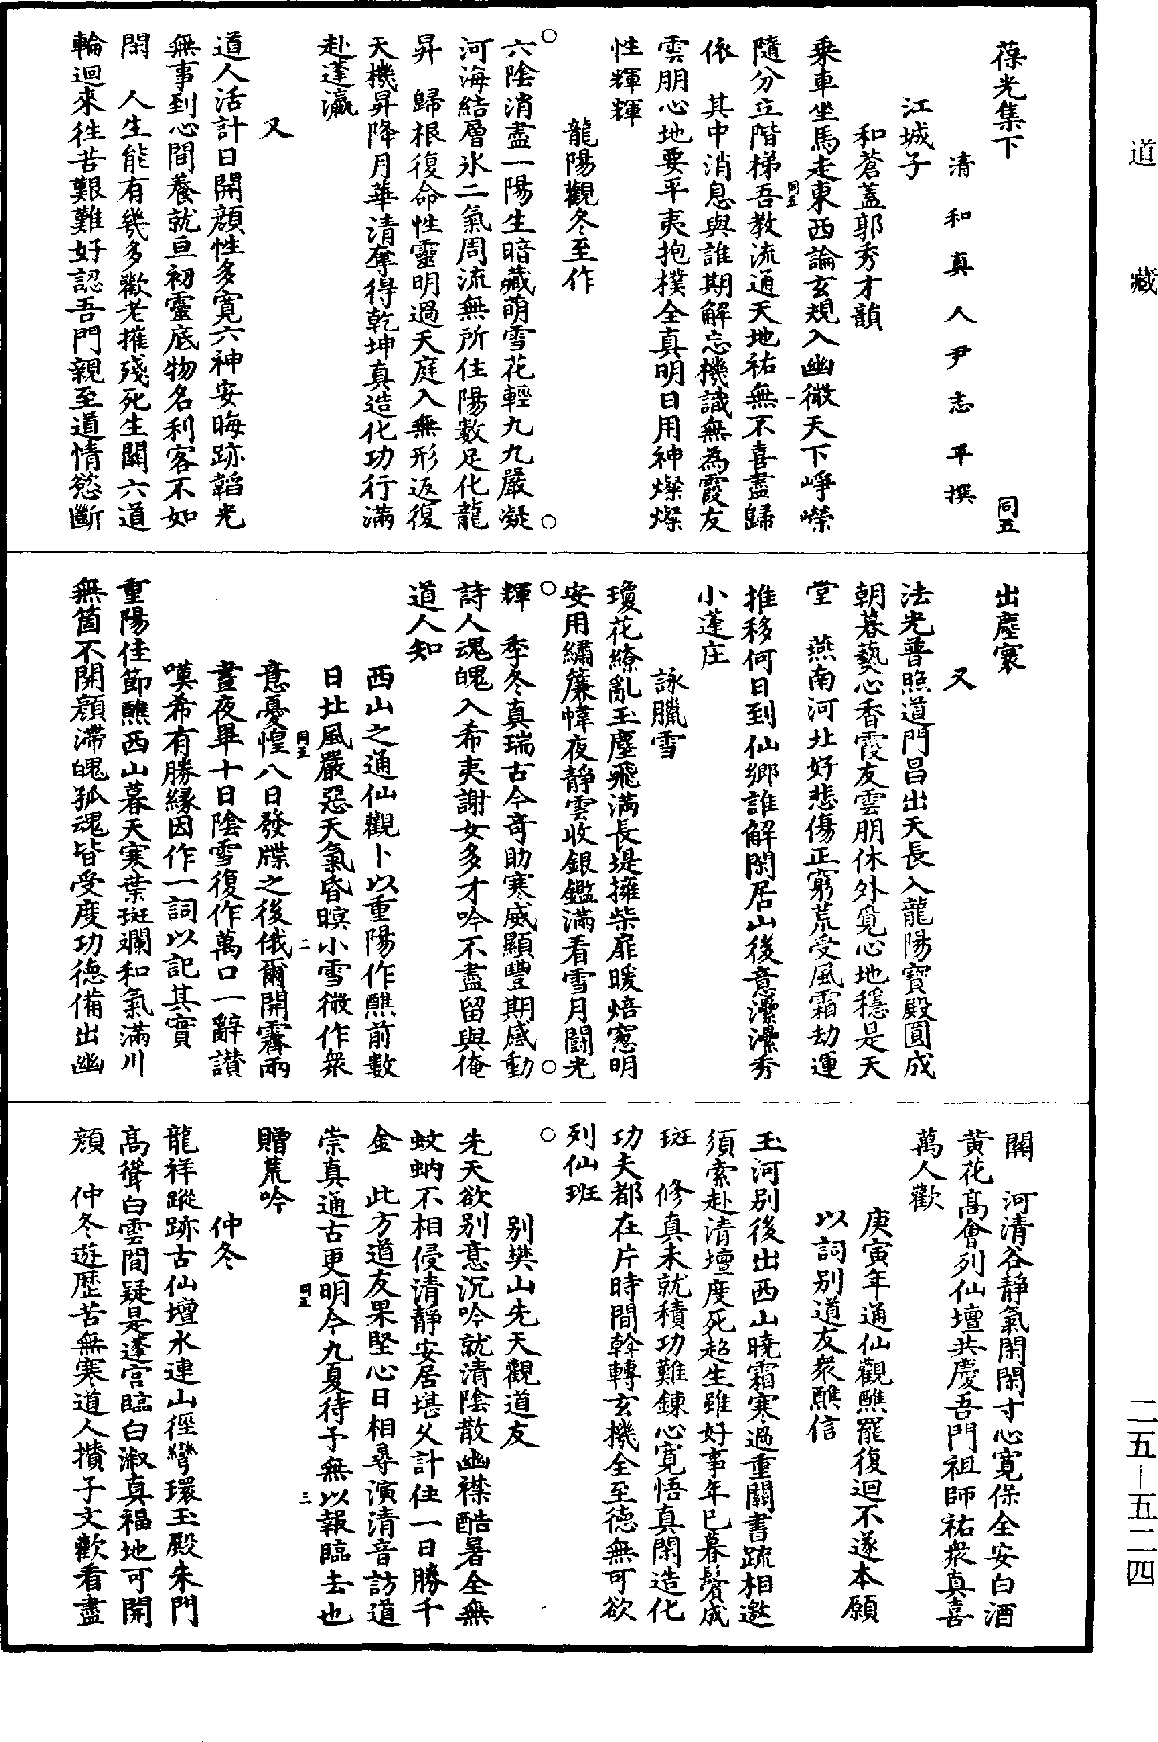 道藏
葆光集下　同五
清和真人尹志平撰
江城子
和蒼蓋郭秀才韻
乘車坐馬走東西論玄規入幽微天下崢嶸
同五　一
隨分立階梯吾教流通天地祐無不喜盡歸
依　其中消息與誰期解忘機識無為霞友
雲朋心地要平夷抱樸全真明日用神燦燦
性輝輝
龍陽觀冬至作
六陰消盡一陽生暗藏萌雪花輕九九嚴凝
河海結層氷二氣周流無所住陽數足化龍
昇　歸根復命性靈明過天庭入無形返復
天機昇降月華清奪得乾坤真造化功行滿
赴蓬瀛
又
道人活計日開顏性多寬六神安晦跡韜光
無事到心間養就亘初靈底物名利客不如
閑　人生能有幾多歡老摧殘死生關六道
輪迴來往苦艱難好認吾門親至道情慾斷
出塵寰
又
法光普照道門昌出天長入龍陽寶殿圓成
朝暮爇心香霞友雲朋休外覓心地穩是天
堂　燕南河北好悲傷正窮荒受風霜劫運
推移何日到仙鄉誰解閑居山後意瀠瀠秀
小蓬庄
詠臘雪
瓊花繚亂玉塵飛滿長堤擁柴扉暖焙窻明
安用繡簾幃夜靜雲收銀鑑滿看雪月鬪光
輝　季冬真瑞古今奇助寒威顯豐期感動
詩人魂魄入希夷謝女多才吟不盡留與俺
道人知
西山之通仙觀卜以重陽作醮前數
日北風嚴惡天氣昏暝小雪微作衆
同五　二
意憂惶八日發牒之後俄爾開霽兩
晝夜畢十日陰雪復作萬口一辭讃
嘆希有勝緣因作一詞以記其實
重陽佳節醮西山暮天寒葉斑斕和氣滿川
無箇不開顏滯魄孤魂皆受度功德備出幽
關　河清谷靜氣閑閑寸心寬保全安白酒
黃花高會列仙壇共慶吾門祖師祐衆真喜
萬人歡
庚寅年通仙觀醮罷復迴不遂本願
以詞別道友衆醮信
玉河別後出西山曉霜寒過重關書疏相邀
須索赴清壇度死超生雖好事年已暮鬢成
斑　修真未就積功難鍊心寬悟真閑造化
功夫都在片時間斡轉玄機全至德無可欲
列仙班
別樊山先天觀道友
先天欲別意沉吟就清陰散幽襟酷暑全無
蚊蚋不相侵清靜安居堪久計住一日勝千
金　此方道友果堅心日相尋演清音訪道
崇真通古更明今九夏待予無以報臨去也
同五　三
贈荒吟
仲冬
龍祥蹤跡古仙壇水連山徑彎環玉殿朱門
高聳白雲間疑是蓬宮臨白漵真福地可開
顏　仲冬遊歷苦無寒道人攢子文歡看盡
二五—五二四